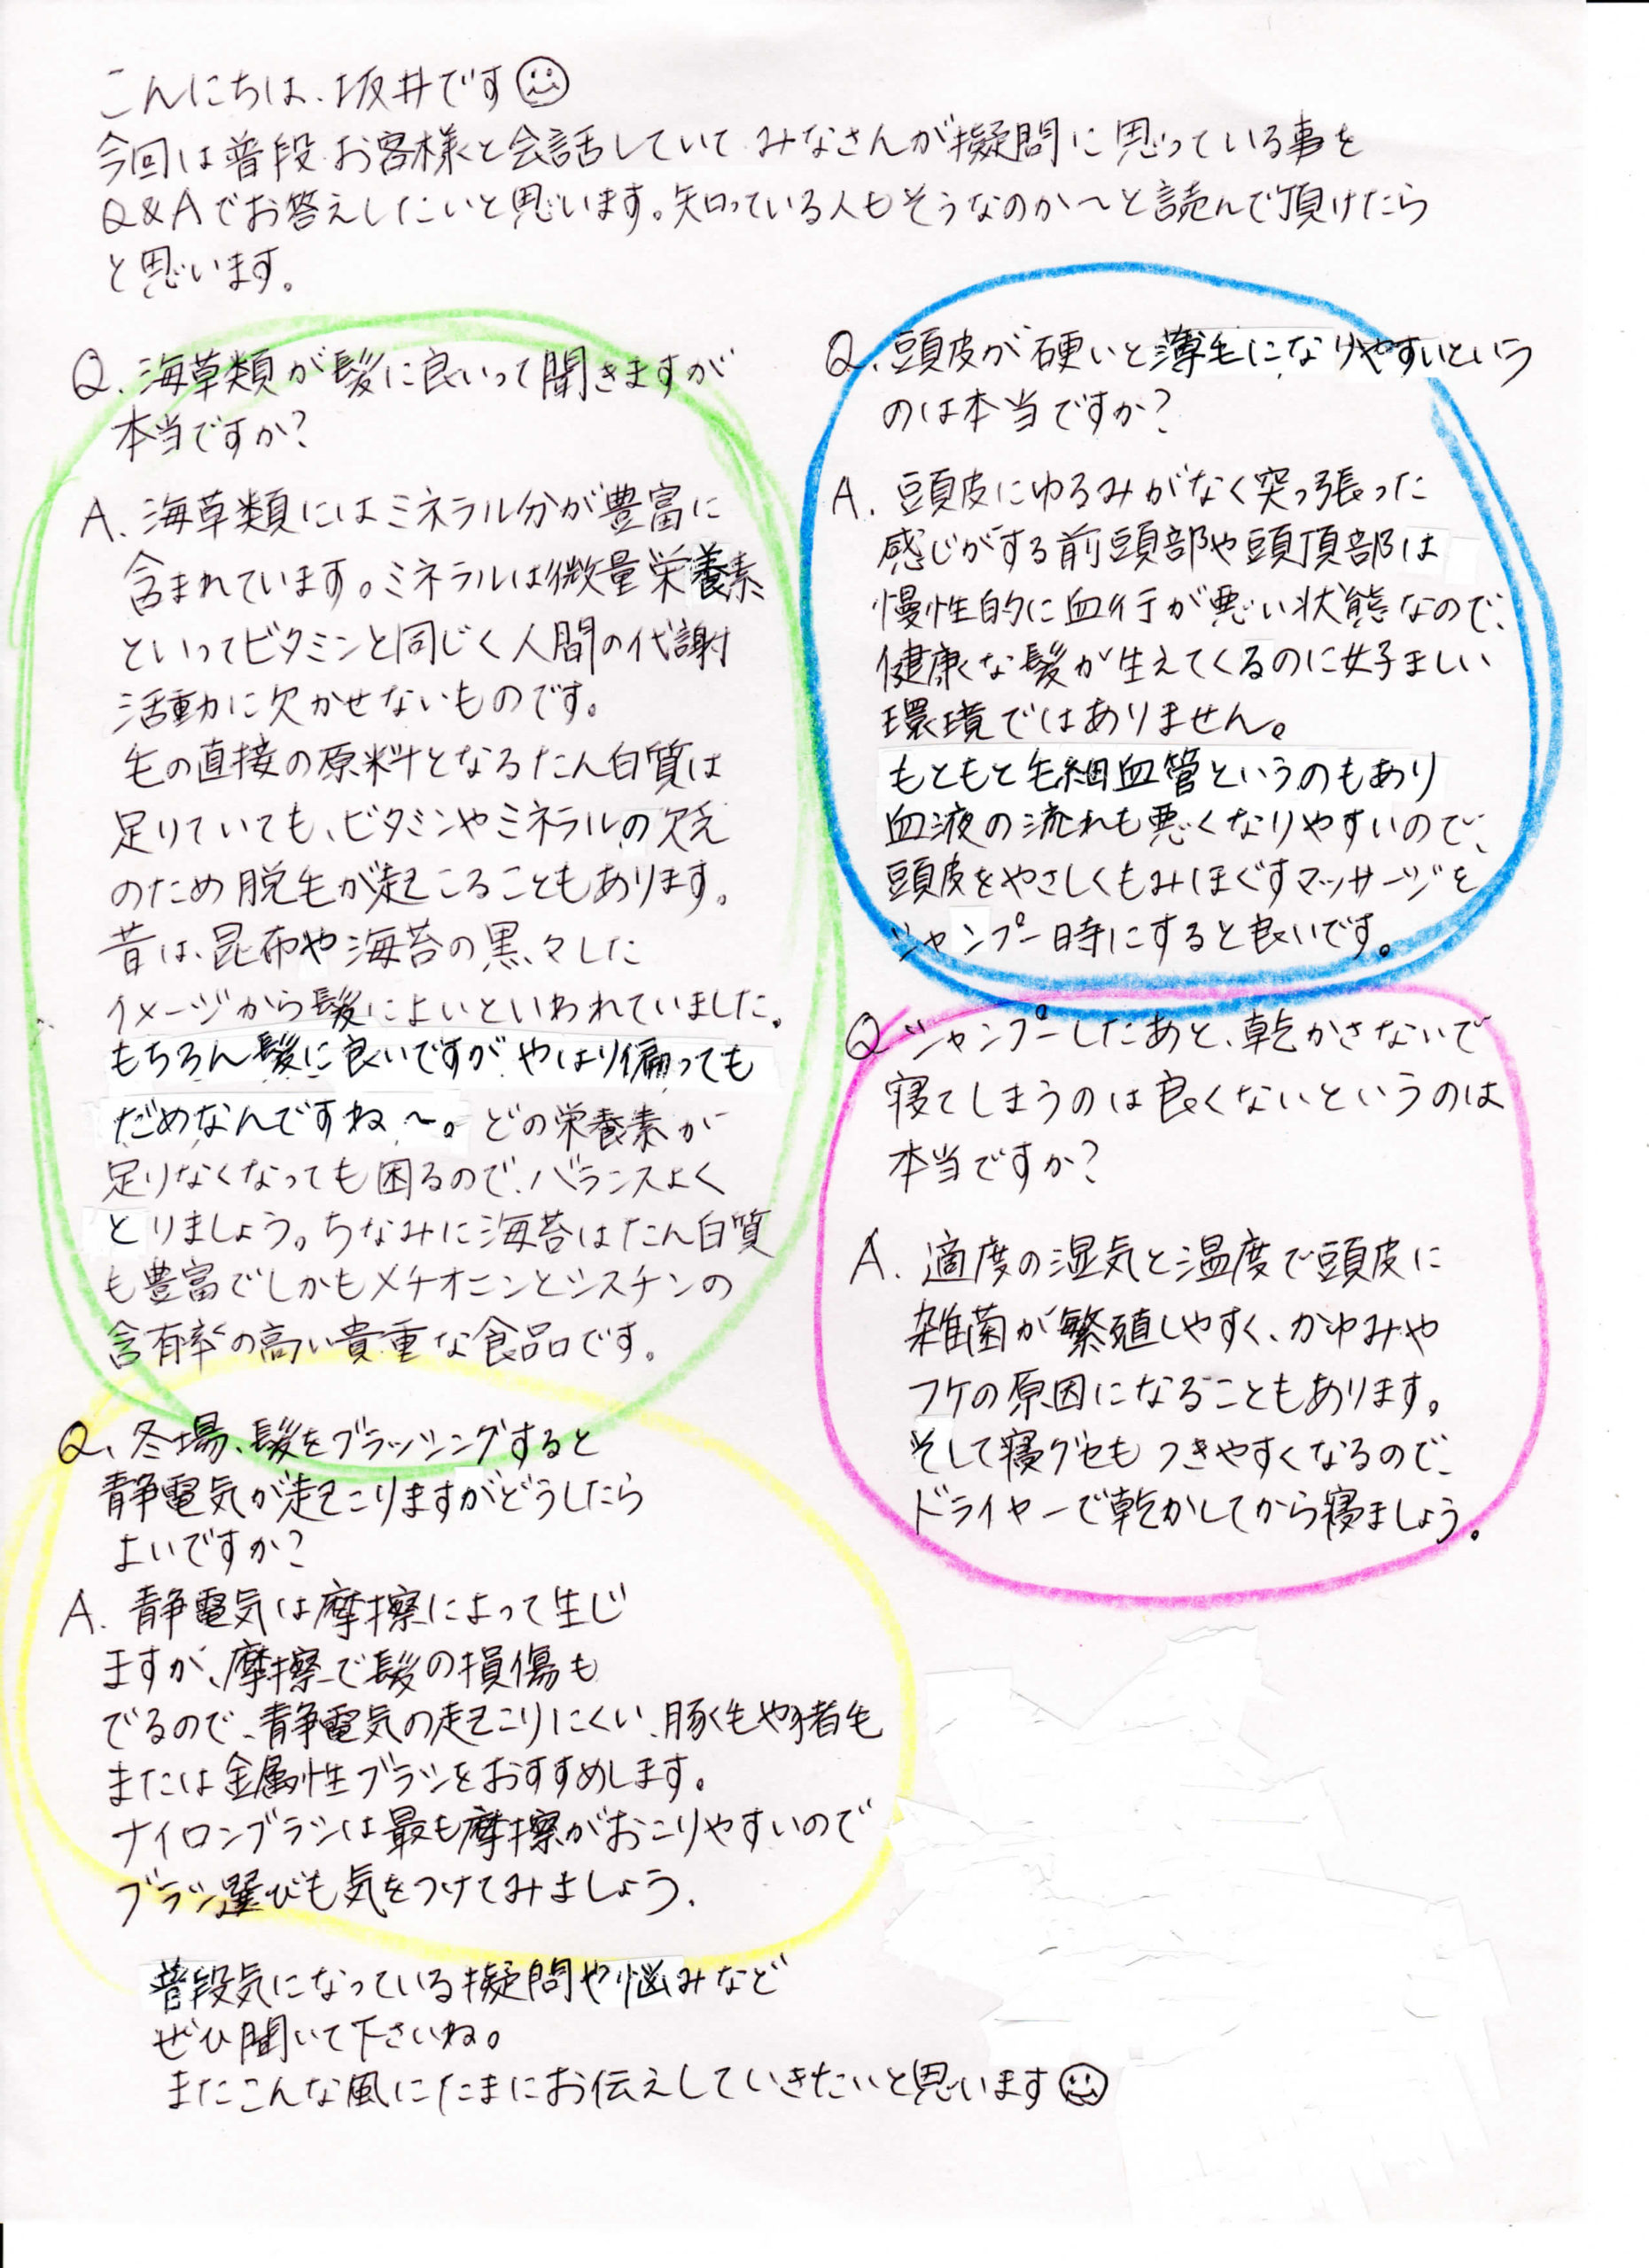 こんにちは、坂井です
今回は普段お客様と会話していてみなさんが擬問に思っている事を
Q&Aでお答えしたいと思います。知っている人もそうなのか〜と読んで頂けたら
と思います。
Q、海草類が髪に良いって聞きますが
本当ですか?
A、海草類にはミネラル分が豊富に
含まれています。ミネラルは微量栄養素
といってビタミンと同じく人間の代謝
活動に欠かせないものです。
毛の直接の原料となるたん白質は
足りていても、ビタミンやミネラルの欠乏
のため脱毛が起こることもあります。
昔は、昆布や海苔の黒々した
イメージから髪によいといわれていました。
もちろん髪に良いですが、やはり偏っても
だめなんですね〜。どの栄養素が
足りなくなっても困るので、バランスよく
とりましょう。ちなみに海苔はたん白質
も豊富でしかもメチオニンとシスチンの
含有率の高い貴重な食品です。
Q、冬場、髪をブラッシングすると
静電気が起こりますがどうしたら
よいですか?
A、静電気は摩擦によって生じ
ますが、摩擦で髪の損傷も
でるので、静電気の起こりにくい、豚毛や猪毛
または金属性ブラシをおすすめします。
ナイロンブラシは最も摩擦がおこりやすいので
ブラシ選びも気をつけてみましょう。
Q、頭皮が硬いと薄毛になりやすいという
のは本当ですか?
A、頭皮にゆるみがなく突っ張った
感じがする前頭部や頭頂部は
慢性的に血行が悪い状態なので、
健康な髪が生えてくるのに好ましい
環境ではありません。
もともと毛細血管というのもあり
血液の流れも悪くなりやすいので、
頭皮をやさしくもみほぐすマッサージを
シャンプー時にすると良いです。
Qシャンプーしたあと、乾かさないで
寝てしまうのは良くないというのは
本当ですか?
A、適度の湿気と温度で頭皮に
雑菌が繁殖しやすく、かゆみや
フケの原因になることもあります。
そして寝グセもつきやすくなるので、
ドライヤーで乾かしてから寝ましょう。
普段気になっている擬問や悩みなど
ぜひ聞いて下さいね。
またこんな風にたまにお伝えしていきたいと思います